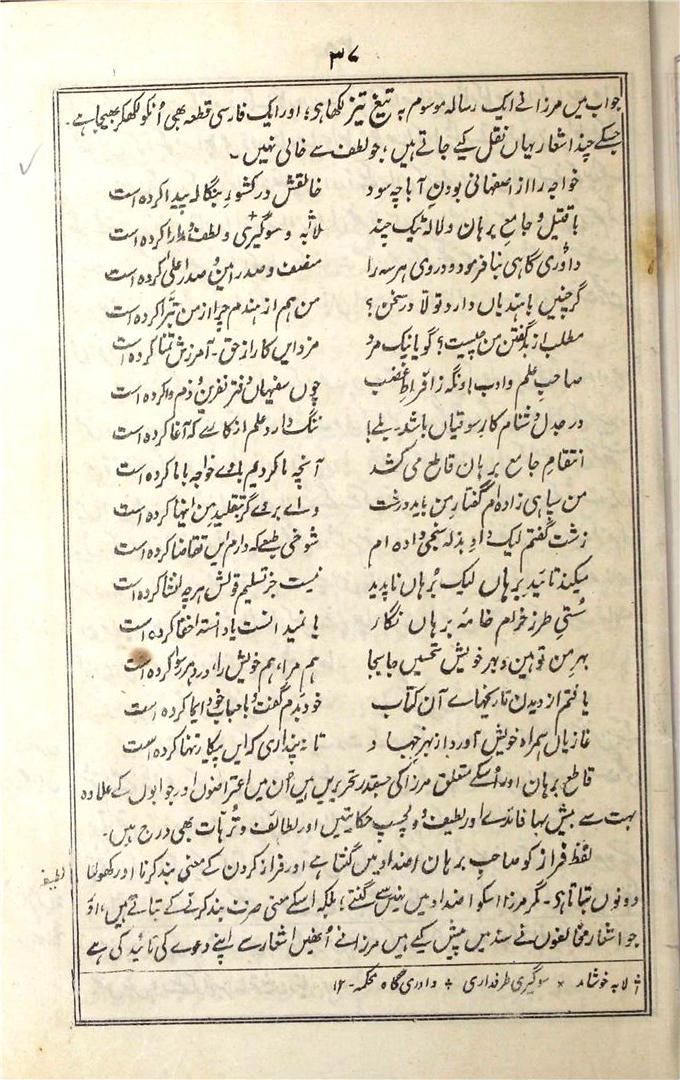 ۳۷
جواب میں مرزا نے ایک رسالہ موسوم بہ تیغ تیز لکھا ہی؛ اور ایک فارسی قطعہ بھی اُنکو لکھکر بھیجا ہے۔
جسکے چند اشعار یہاں نقل کیے جاتے ہیں؛ جو لطف سے خالی نہیں۔
خواجہ را از اصفہانی بودنِ آبا چہ سود خالقش در کشورِ بنگالہ پیدا کردہ است
با قتیل و جامعِ برہان و لالہ ٹیک چند لابہ و سوگیری و لطف و مدارا کردہ است
داوری گاہی بنا فرمود و در وی ہر سہ را منصف و صدر امین و صدر اعلیٰ کردہ است
گر چنیں با ہندیاں دارد تولّا در سخن؟ من ہم از ہندم چرا از من تبرّا کردہ است
مطلب از بد گفتنِ من چیست؟ گویا نیک مرد مزد ایں کار از حق۔ آمرزش تمنا کردہ است
صاحبِ علم و ادب وانگہ ز افراطِ غضب چوں سفیہاں دفترِ نفرین و ذم وا کردہ است
در جدل دشنام کارِ سوقیاں باشد۔ بلے! ننگ دارد علم از کارے کہ آغا کردہ است
انتقامِ جامعِ برہان قاطع می کشد آنچہ ما کردیم با وے خواجہ با ما کردہ است
من سپاہی زادہ ام گفتارِ من باید درشت وائے بر وے گر بتقلیدِ من اینہا کردہ است
زشت گفتم لیک دادِ بذلہ سنجی دادہ ام شوخی طبعے کہ دارم ایں تقاضا کردہ است
میکند تائیدِ برہاں لیک بُرہاں ناپدید نیست جز تسلیمِ قولش ہر چہ انشا کردہ است
سُستیِ طرزِ خرامِ خامۂ برہاں نگار یا نمیدانست یا دانستہ اخفا کردہ است
بہرِ من توہین و بہرِ خویش تحسیں جا بجا ہم مرا، ہم خویش را، در دہر رسوا کردہ است
یافتم از دیدنِ تاریخہاے آں کتاب خود بدم گفت و باحبابِ خود ایما کردہ است
غازیاں ہمراہ خویش آورد از بہرِ جہاد تا نہ پنداری کہ ایں پیکار تنہا کردہ است
قاطع برہان اور اُسکے متعلق مرزا کی جسقدر تحریریں ہیں اُن میں اعتراضوں اور جوابوں کے علاوہ
بہت سے بیش بہا فائدے اور لطیف و دلچسپ حکایتیں اور لطائف و تُرہات بھی درج ہیں۔
لطیفہ
لفظ فراز کو صاحبِ برہان اضداد میں گنتا ہے اور فراز کردن کے معنی بند کرنا اور کھولنا
دونوں بتاتا ہی۔ مگر مرزا اسکو اضداد میں نہیں گنتے؛ بلکہ اسکے معنی صرف بند کرنے کے بتاتے ہیں، اور
جو اشعار مخالفوں نے سند میں پیش کیے ہیں مرزا نے اُنھیں اشعار سے اپنے دعوے کی تائید کی ہے
لابہ خوشامد × سوگیری طرفداری ÷ داوری گاہ محکمہ۔ ۱۲